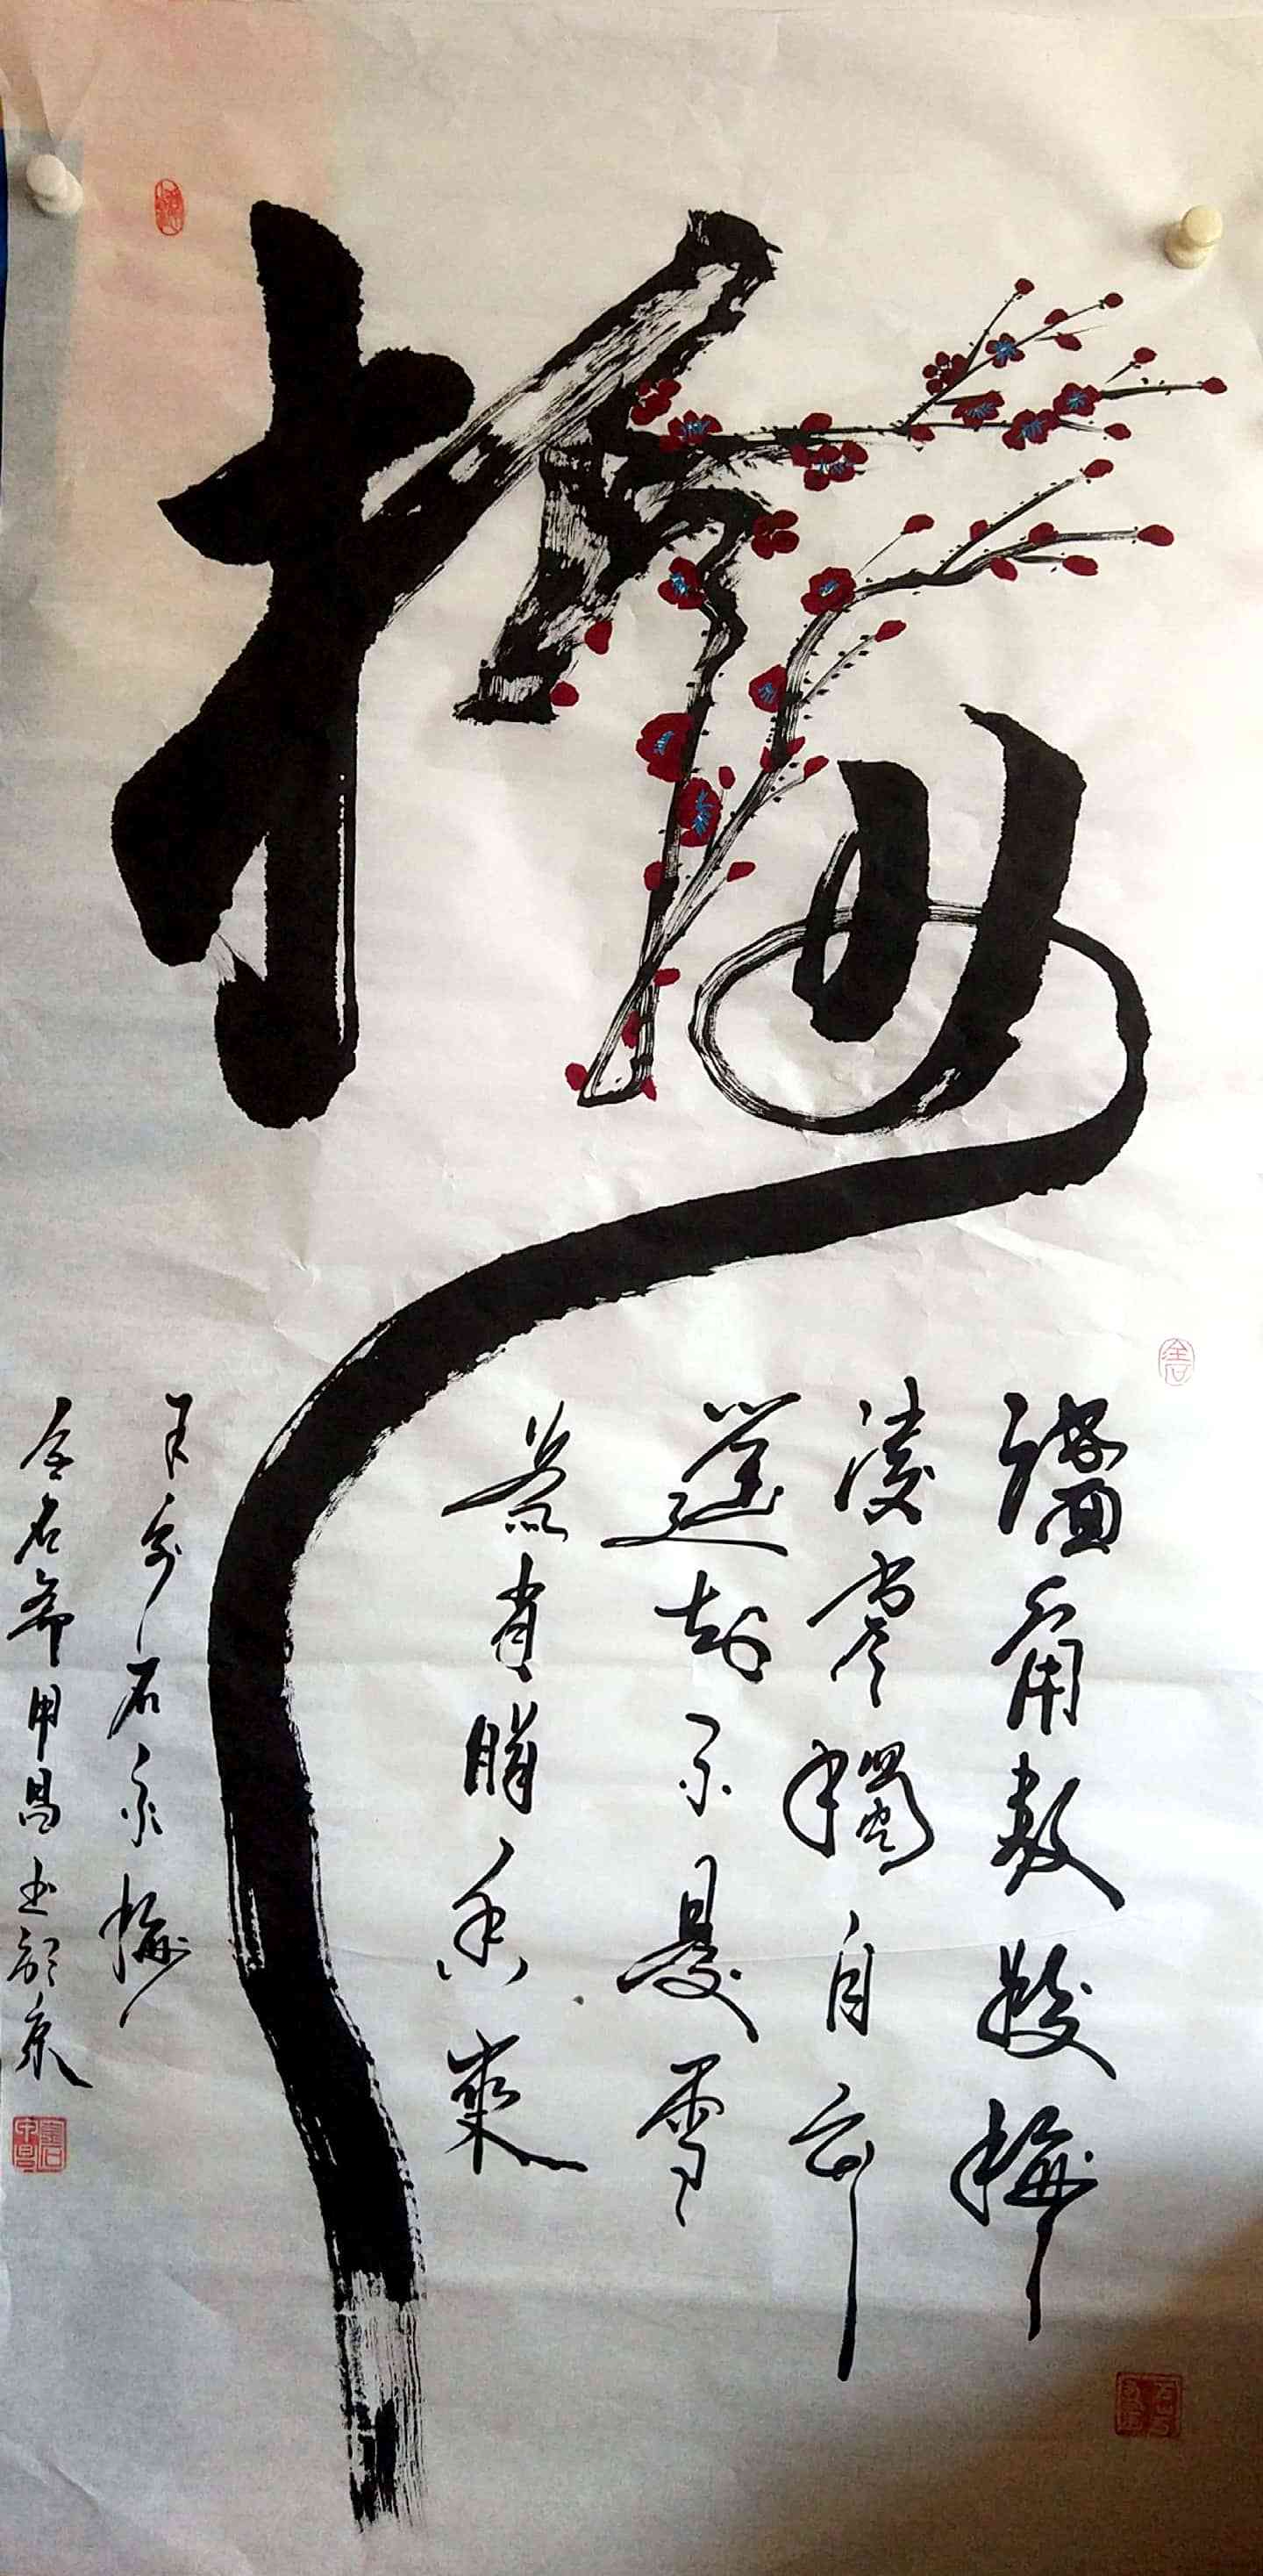 梅
墙角数枝梅
凌寒独自开
遥知不是雪
为有暗香来
王安石诗梅
金石斋甲昌书于京